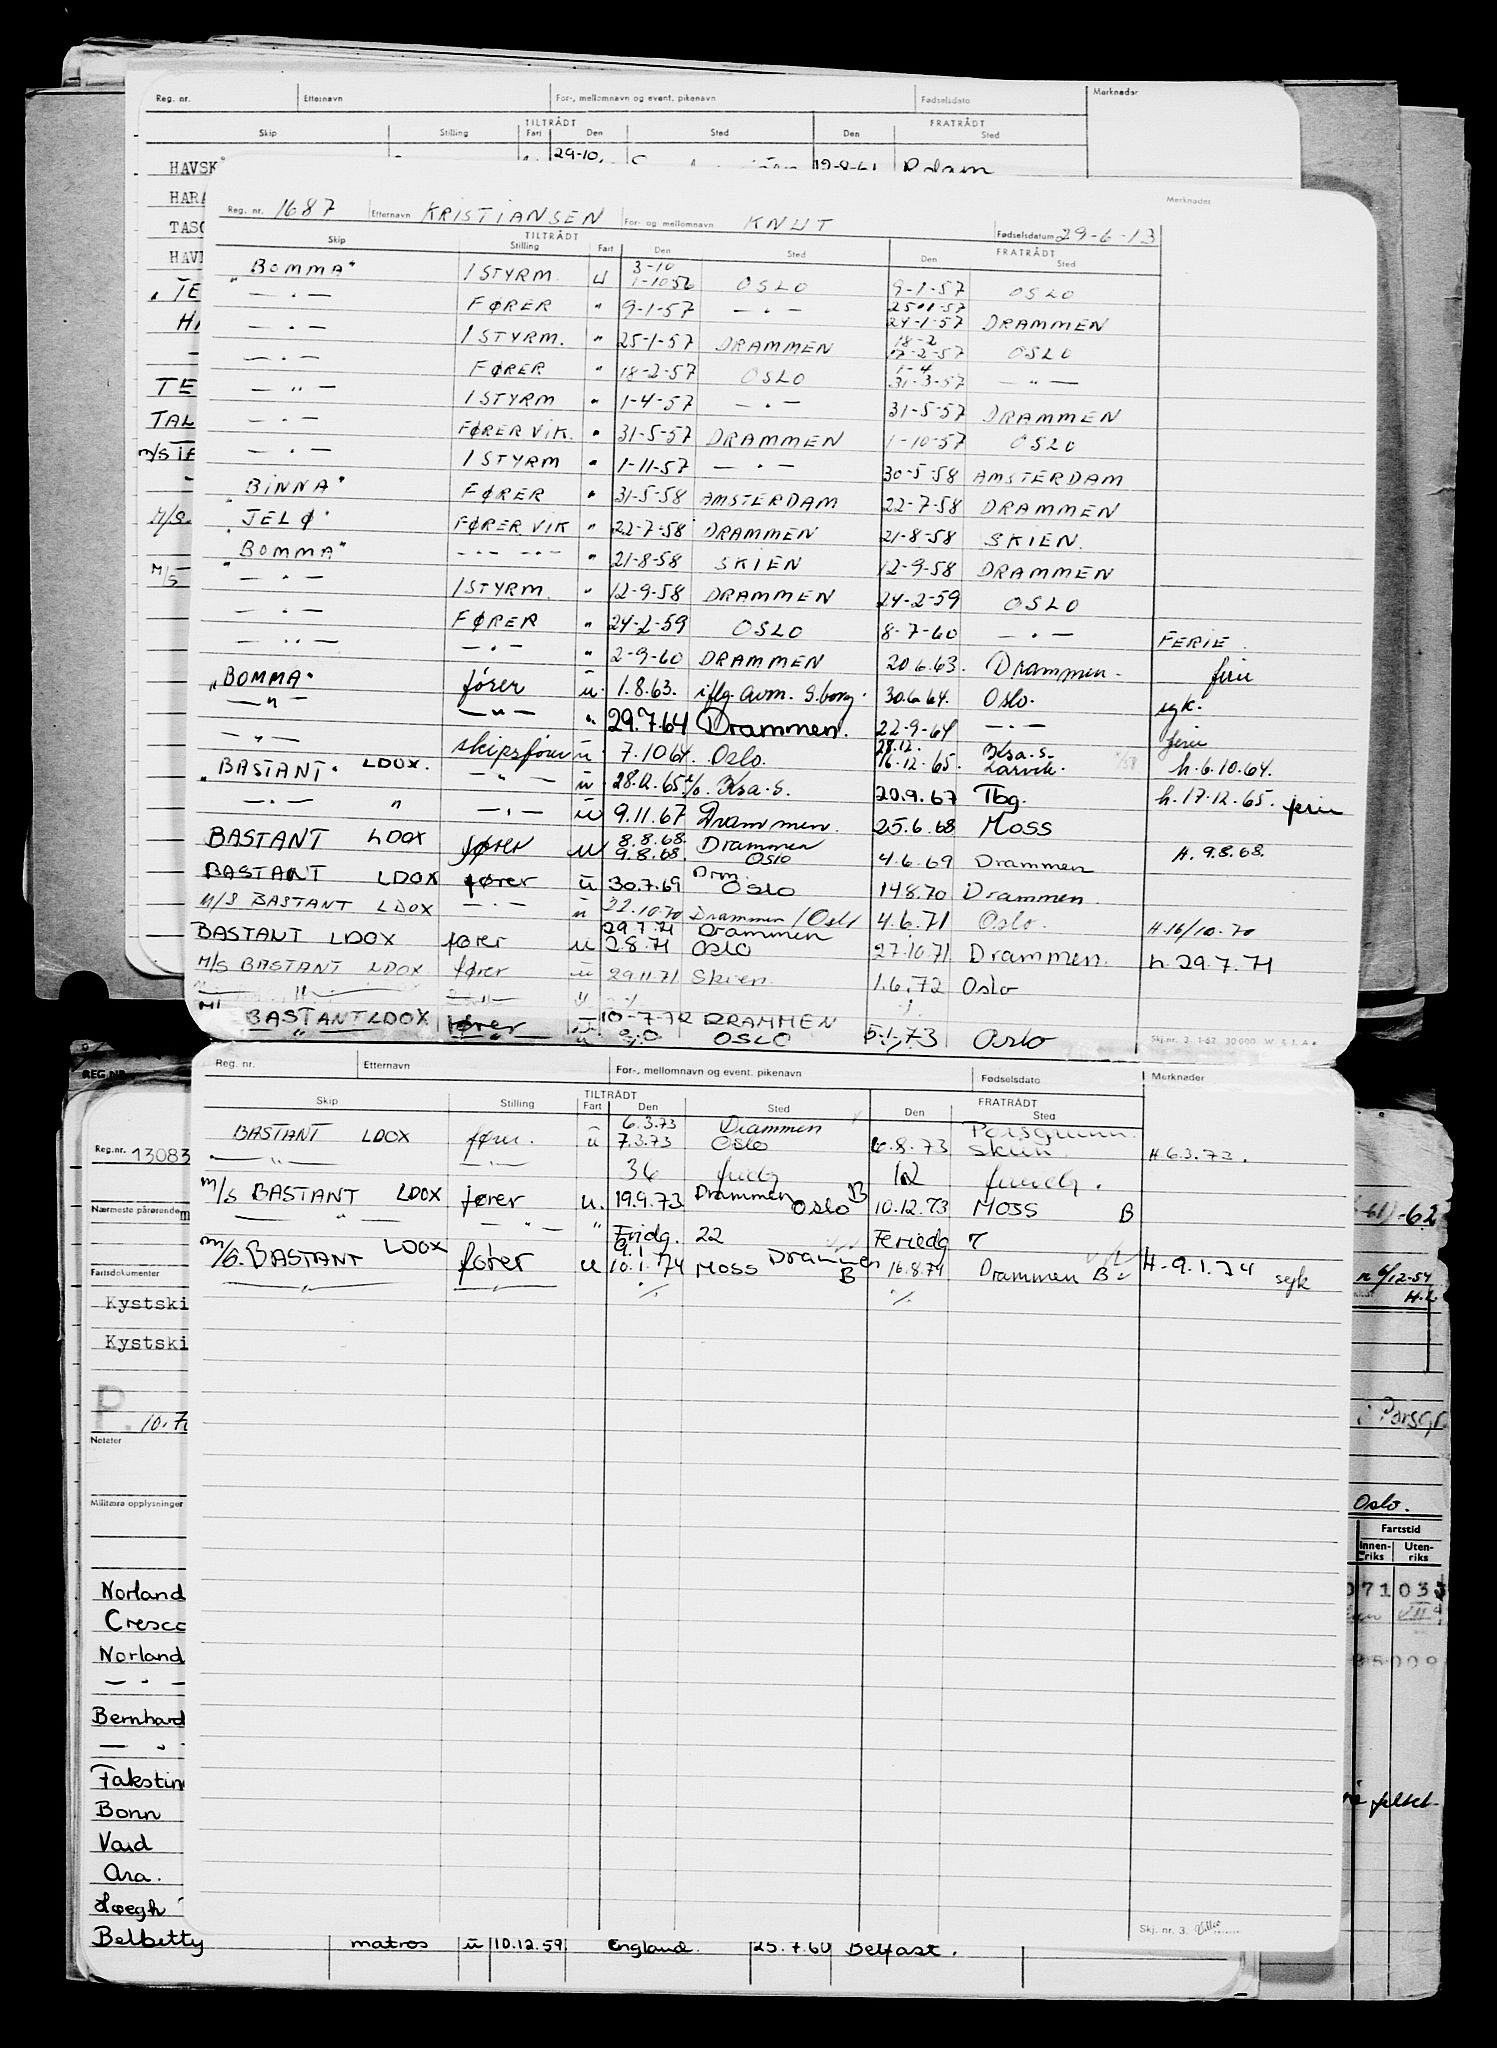 Reg. nr. Etternavn For-, mellomnavn og event. pikenavn Fødselsdato Merknader
TILTRÅDT FRATRÅDT
Skip Stilling Fart Den Sted Den Sted
HAVSK 29-10. 19-8-61 R.dam
HARA
TASC
HAVI
"TE
HA
TE
TAL
M/S TE
M/S.
M/S
Merknader
Reg. nr. 1687 Etternavn KRISTIANSEN For- og mellomnavn KNUT Fødselsdatum 29-6-13
TILTRÅDT FRATRÅDT
Skip Stilling Fart Den Sted Den Sted
"BOMMA" 1 STYRM. U 3-10 1-10 56 OSLO 9-1-57 OSLO
— " — FØRER " 9-1-57 — " — 25-1-57 24-1-57 DRAMMEN
— " — 1 STYRM. " 25-1-57 DRAMMEN 18-2 17-2-57 OSLO
— " — FØRER " 18-2-57 OSLO 1-4 31-3-57 — " —
— " — 1 STYRM " 1-4-57 — " — 31-5-57 DRAMMEN
— " — FØRER VIK. " 31-5-57 DRAMMEN 1-10-57 OSLO
— " — 1 STYRM " 1-11-57 — " — 30-5-58 AMSTERDAM
"BINNA" FØRER " 31-5-58 AMSTERDAM 22-7-58 DRAMMEN
"JELØ" FØRER VIK " 22-7-58 DRAMMEN 21-8-58 SKIEN.
"BOMMA" — " — — " — " 21-8-58 SKIEN 12-9-58 DRAMMEN
— " — 1 STYRM. " 12-9-58 DRAMMEN 24-2-59 OSLO
— " — FØRER " 24-2-59 OSLO 8-7-60 — " — FERIE.
— " — — " — " 2-9-60 DRAMMEN 20.6.63. Drammen. ferie
"BOMMA" fører u. 1.8.63. iflg. avm. S.borg. 30.6.64. Oslo. syk.
— " — — " — " 29.7.64 Drammen. 22-9-64 — " — ferie
— " — skipsfører u 7.10 64. Oslo. 28.12. 16.12.65. Krsa.S. Larvik. h.6.10.64.
"BASTANT" LDOX. — " — u 28.12.65 Krsa.S. 20.9.67 Tbg. h.17.12.65. ferie
— " — " — " — u 9.11.67 Drammen. 25.6.68 MOSS
BASTANT LDOX fører u 8.8.68. 9.8.68. Drammen Oslo 4.6.69 Drammen H. 9.8.68.
BASTANT LDOX fører u 30.7.69 Drm. OSLO 14.8.70 Drammen.
M/S BASTANT LDOX — " — u 22.10.70 Drammen/Oslo 4.6.71 Oslo. H.16/10.70
BASTANT LDOX fører u 29.7.71 2.8.71 Drammen OSLO 27.10.71 Drammen. h.29.7.71
M/S BASTANT LDOX fører u 29.11.71 Skien. 1.6.72 Oslo
— " — — " — u
M/S BASTANT LDOX fører u 10-7-72 DRAMMEN OSLO 5.1.73 Oslo
Skj.nr. 3. 1-62. 30 000 W. S. I. A.s
Reg. nr. Etternavn For-, mellomnavn og event. pikenavn Fødselsdato Merknader
TILTRÅDT FRATRÅDT
Skip Stilling Fart Den Sted Den Sted
BASTANT LDOX fører. u 6.3.73 7.3.73 Drammen Oslo 6.8.73 Porsgrunn. Skien. H.6.3.73.
— " — — " — 36 12
M/S BASTANT LDOX fører u. 19.9.73 Drammen Oslo B 10.12.73 MOSS B
— " — — " — " Fridg. 22 Feriedg 7
M/S. BASTANT LDOX fører u 9.1. 10.1.74 MOSS Drammen B 16.8.74 Drammen B H-9.1.74 syk
— " — — " — ./. ./.
REG.NR
Reg.nr. 13083
Nærmeste pårørende
61)-62
Fartsdokumenter
Kystski
Kystski
P. 10.7
Notater
i Porsgr
Militære opplysninger
Oslo.
Fartstid
Innen-riks Uten-riks
Norland
Cresco
Norland
— " —
Bernhard
— "
Fakstin
Bonn
Vard
Ara.
Høegh
Skj. nr. 3.
Belbetty matros u 10.12.59 England. 25.7.60 Belfast.